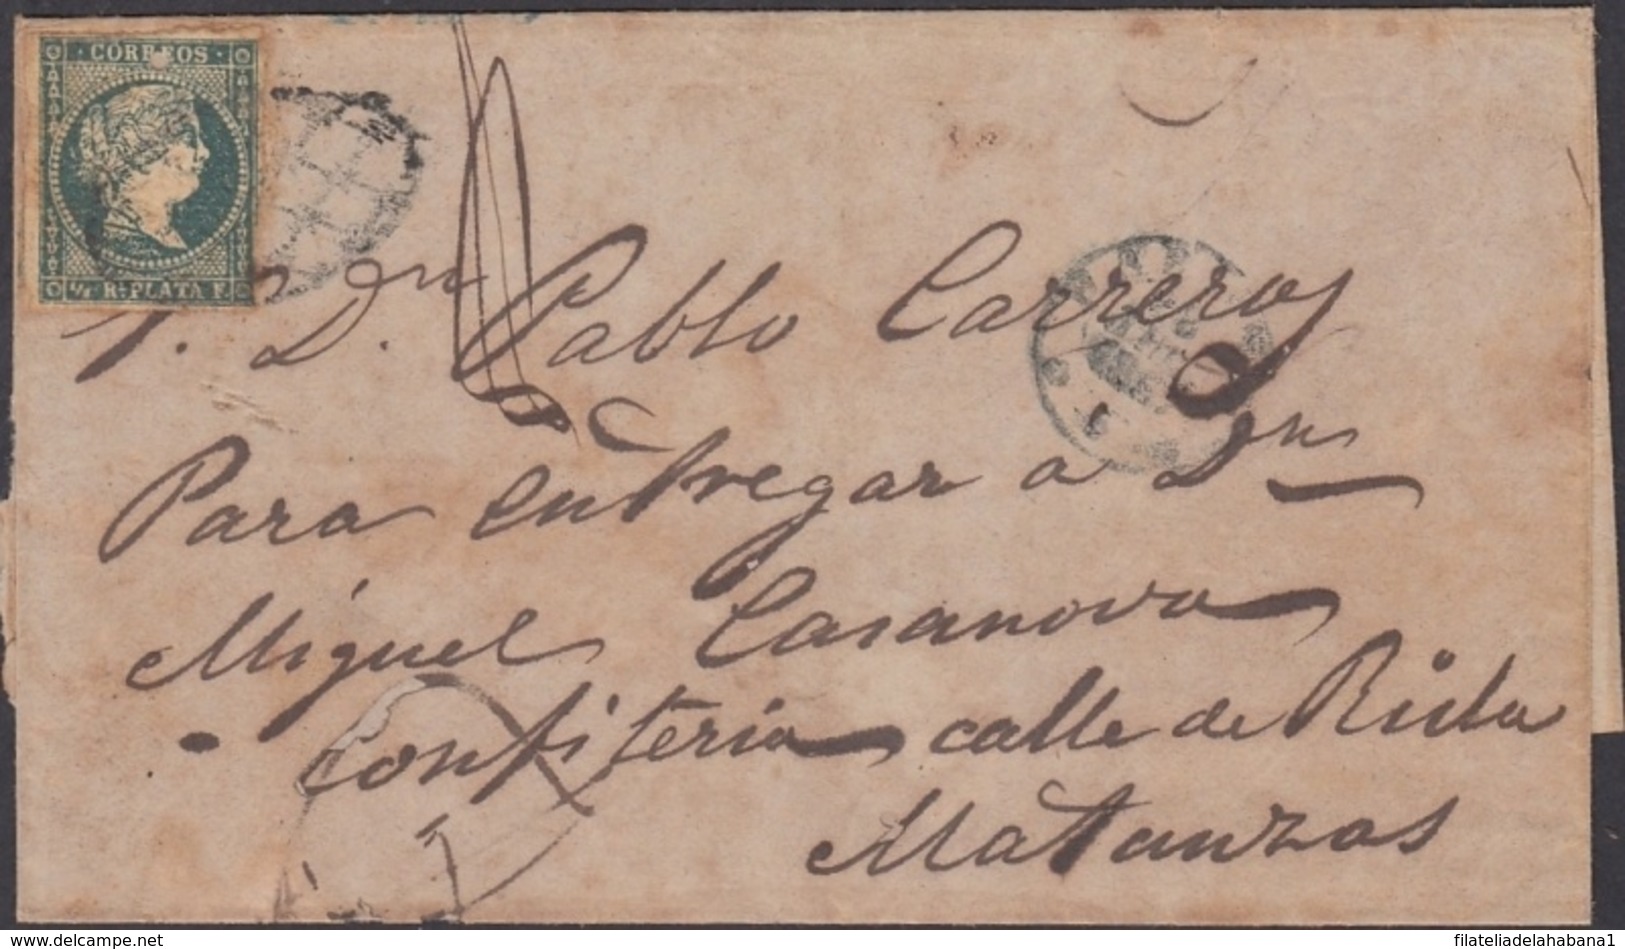 CORREOS
½ Rl. PLATA F.
S. Dn. Dn Pablo Carreros
Para entregar a Dn
Miguel Casanova
Confiteria calle de Ricla
Matanzas
delcampe.net
filateliadelahabana1